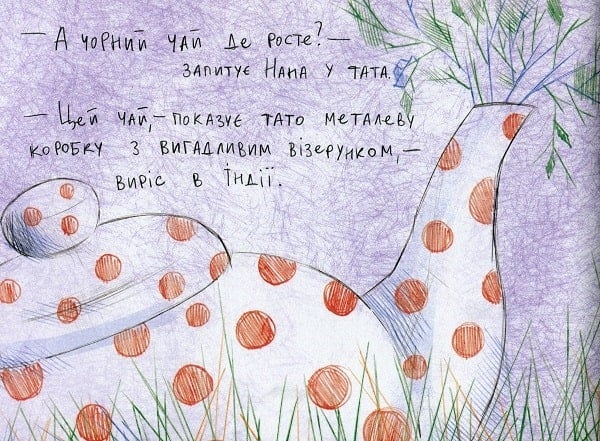 — А чорний чай де росте? —
запитує Нана у тата.
— Цей чай, — показує тато металеву
коробку з вигадливим візерунком, —
виріс в Індії.